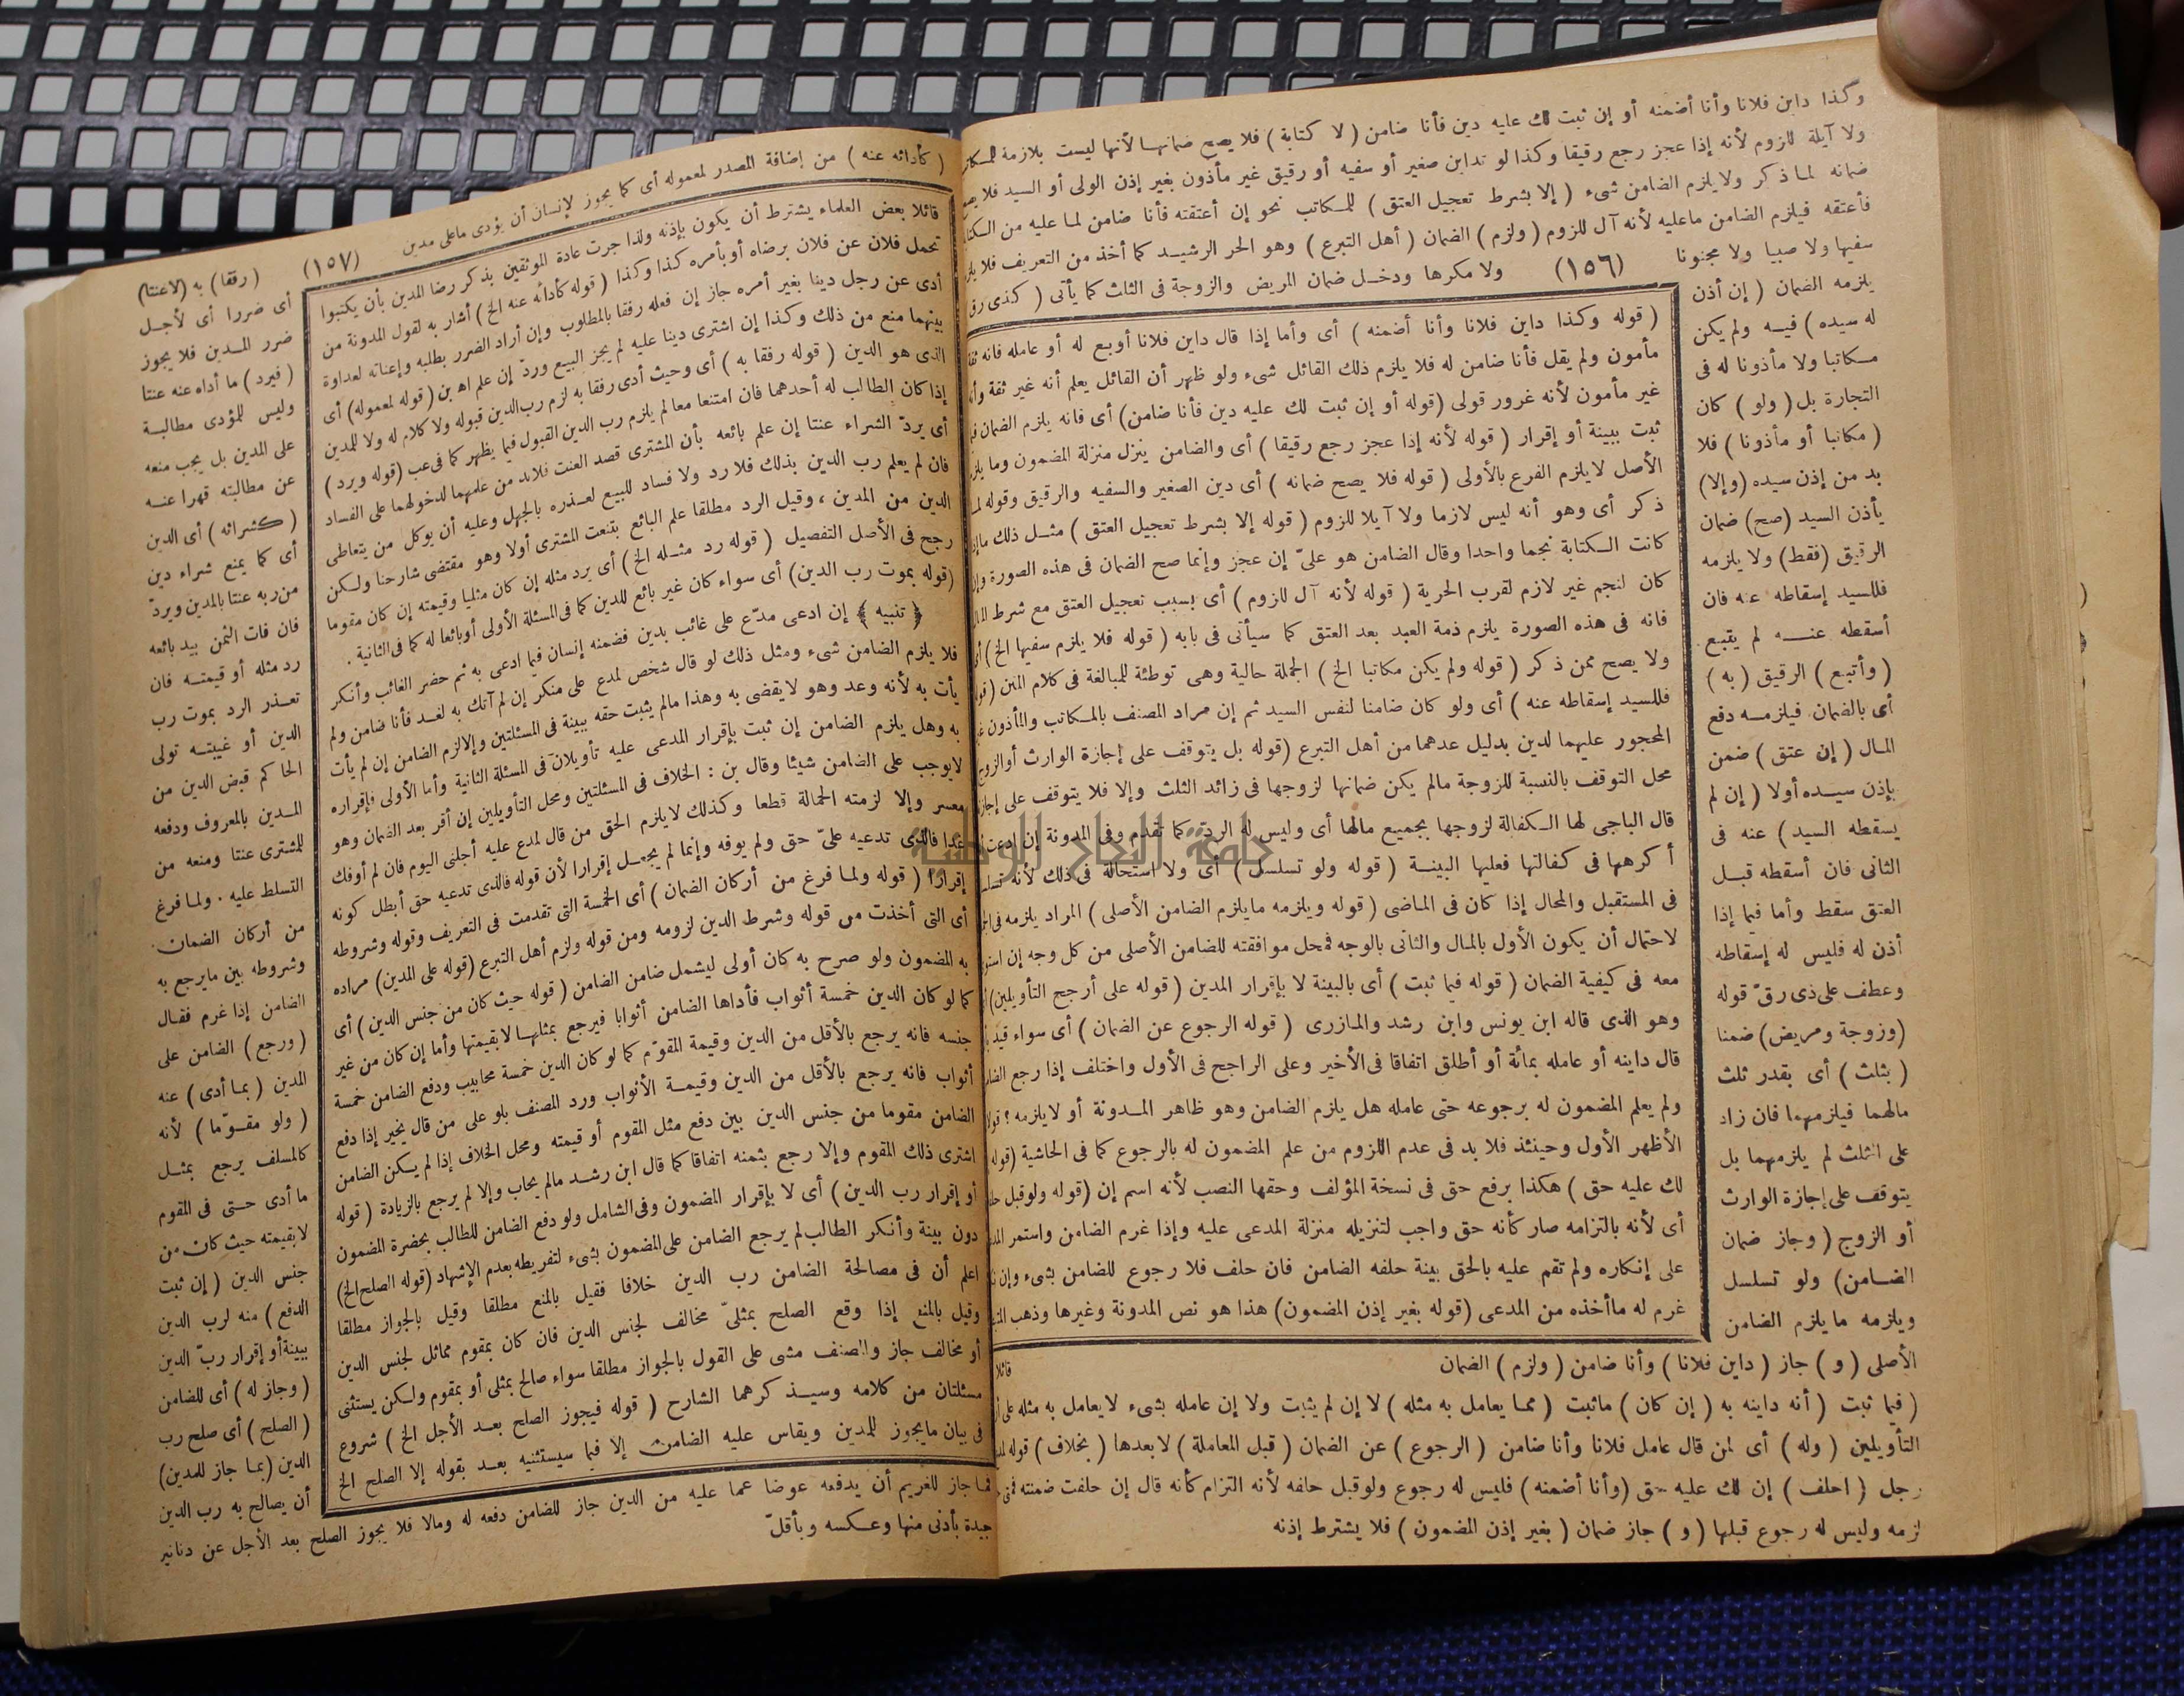 وكذا داين فلانا وأنا أضمنه أو إن ثبت لك عليه دين فأنا ضامن (لا كتابة) فلا يصح ضمانها لأنها ليست بلازمة
ولا آيلة للزوم لأنه إذا عجز رجع رقيقا وكذا لو تداين صغير أو سفيه أو رقيق غير مأذون بغير إذن الولى أو السيد فلا
ضمانه لما ذكر ولا يلزم الضامن شىء (إلا بشرط تعجيل العتق) للمكاتب نحو إن أعتقته فأنا ضامن لما عليه من
فأعتقه فيلزم الضامن ماعليه لأنه آل للزوم (ولزم) الضمان (أهل التبرع) وهو الحر الرشيد كما أخذ من التعريف فلا
سفيها ولا صبيا ولا مجنونا (١٥٦) ولا مكرها ودخل ضمان المريض والزوجة فى الثلث كما يأتى (كذى رق
يلزمه الضمان (إن أذن
له سيده) فيه ولم يكن
مكاتبا ولا مأذونا له فى
التجارة بل (ولو) كان
(مكاتبا أو مأذونا) فلا
بد من إذن سيده (وإلا)
يأذن السيد (صح) ضمان
الرقيق (فقط) ولا يلزمه
فللسيد إسقاطه عنه فان
أسقطه عنه لم يتبع
(وأتبع) الرقيق (به)
أى بالضمان فيلزمه دفع
المال (إن عتق) ضمن
بإذن سيده أولا (إن لم
يسقطه السيد) عنه فى
الثانى فان أسقطه قبل
العتق سقط وأما فيما إذا
أذن له فليس له إسقاطه
وعطف على ذى رقّ قوله
(وزوجة ومريض) ضمنا
(بثلث) أى بقدر ثلث
مالهما فيلزمهما فان زاد
على الثلث لم يلزمهما بل
يتوقف على إجازة الوارث
أو الزوج (وجاز ضمان
الضامن) ولو تسلسل
ويلزمه ما يلزم الضامن
الأصلى (و) جاز (داين فلانا) وأنا ضامن (ولزم) الضمان
(فيما ثبت) أنه داينه به (إن كان) ماثبت (مما يعامل به مثله) لا إن لم يثبت ولا إن عامله بشىء لا يعامل به مثله على
التأويلين (وله) أى لمن قال عامل فلانا وأنا ضامن (الرجوع) عن الضمان (قبل المعاملة) لا بعدها (بخلاف) قوله
رجل (احلف) إن لك عليه حق (وأنا أضمنه) فليس له رجوع ولو قبل حلفه لأنه التزام كأنه قال إن حلفت ضمنته
لزمه وليس له رجوع قبلها (و) جاز ضمان (بغير إذن المضمون) فلا يشترط إذنه
(قوله وكذا داين فلانا وأنا أضمنه) أى وأما إذا قال داين فلانا أو بع له أو عامله فانه ثقة
مأمون ولم يقل فأنا ضامن له فلا يلزم ذلك القائل شىء ولو ظهر أن القائل يعلم أنه غير ثقة وأنه
غير مأمون لأنه غرور قولى (قوله أو إن ثبت لك عليه دين فأنا ضامن) أى فانه يلزم الضمان
ثبت ببينة أو إقرار (قوله لأنه إذا عجز رجع رقيقا) أى والضامن ينزل منزلة المضمون وما
الأصل لا يلزم الفرع بالأولى (قوله فلا يصح ضمانه) أى دين الصغير والسفيه والرقيق وقوله لما
ذكر أى وهو أنه ليس لازما ولا آيلا للزوم (قوله إلا بشرط تعجيل العتق) مثل ذلك
كانت الكتابة نجما واحدا وقال الضامن هو علىّ إن عجز وإنما صح الضمان فى هذه الصورة
كان لنجم غير لازم لقرب الحرية (قوله لأنه آل للزوم) أى بسبب تعجيل العتق مع شرط
فانه فى هذه الصورة يلزم ذمة العبد بعد العتق كما سيأتى فى بابه (قوله فلا يلزم سفيها الخ)
ولا يصح ممن ذكر (قوله ولم يكن مكاتبا الخ) الجملة حالية وهى توطئة للمبالغة فى كلام المتن
فللسيد إسقاطه عنه) أى ولو كان ضامنا لنفس السيد ثم إن مراد المصنف بالمكاتب والمأذون
المحجور عليهما لدين بدليل عدهما من أهل التبرع (قوله بل يتوقف على إجازة الوارث أو الزوج
محل التوقف بالنسبة للزوجة مالم يكن ضمانها لزوجها فى زائد الثلث وإلا فلا يتوقف على
قال الباجى لها الكفالة لزوجها بجميع مالها أى وليس له الرد كما تقدم وفى المدونة إن ادعت
أكرهها فى كفالتها فعليها البينة (قوله ولو تسلسل) أى ولا استحالة فى ذلك لأنه
فى المستقبل والمحال إذا كان فى الماضى (قوله ويلزمه مايلزم الضامن الأصلى) المراد يلزمه فى
لاحتمال أن يكون الأول بالمال والثانى بالوجه فمحل موافقته للضامن الأصلى من كل وجه إن
معه فى كيفية الضمان (قوله فيما ثبت) أى بالبينة لا بإقرار المدين (قوله على أرجح التأويلين)
وهو الذى قاله ابن يونس وابن رشد والمازرى (قوله الرجوع عن الضمان) أى سواء قيد
قال داينه أو عامله بمائة أو أطلق اتفاقا فى الأخير وعلى الراجح فى الأول واختلف إذا رجع
ولم يعلم المضمون له برجوعه حتى عامله هل يلزم الضامن وهو ظاهر المدونة أو لا يلزمه؟
الأظهر الأول وحينئذ فلا بد فى عدم اللزوم من علم المضمون له بالرجوع كما فى الحاشية (قوله
لك عليه حق) هكذا برفع حق فى نسخة المؤلف وحقها النصب لأنه اسم إن (قوله ولو قبل
أى لأنه بالتزامه صار كأنه حق واجب لتنزيله منزلة المدعى عليه وإذا غرم الضامن واستمر
على إنكاره ولم تقم عليه بالحق بينة حلفه الضامن فان حلف فلا رجوع للضامن بشىء وإن
غرم له ماأخذه من المدعى (قوله بغير إذن المضمون) هذا هو نص المدونة وغيرها وذهب
قائلا
(كأدائه عنه) من إضافة المصدر لمعموله أى كما يجوز لإنسان أن يؤدى ماعلى مدين (١٥٧) (رفقا) به (لا عنتا)
أى ضررا أى لأجل
ضرر المدين فلا يجوز
(فيرد) ما أداه عنه عنتا
وليس للمؤدى مطالبة
على المدين بل يجب منعه
عن مطالبته قهرا عنه
(كشرائه) أى الدين
أى كما يمنع شراء دين
من ربه عنتا بالمدين ويردّ
فان فات الثمن بيد بائعه
رد مثله أو قيمته فان
تعذر الرد بموت رب
الدين أو غيبته تولى
الحاكم قبض الدين من
المدين بالمعروف ودفعه
للمشترى عنتا ومنعه من
التسلط عليه. ولما فرغ
من أركان الضمان
وشروطه بين مايرجع به
الضامن إذا غرم فقال
(ورجع) الضامن على
المدين (بما أدى) عنه
(ولو مقوّما) لأنه
كالمسلف يرجع بمثل
ما أدى حتى فى المقوم
لا بقيمته حيث كان من
جنس الدين (إن ثبت
الدفع) منه لرب الدين
ببينة أو إقرار ربّ الدين
(وجاز له) أى للضامن
(الصلح) أى صلح رب
الدين (بما جاز للمدين)
أن يصالح به رب الدين
فما جاز للغريم أن يدفعه عوضا عما عليه من الدين جاز للضامن دفعه له ومالا فلا يجوز الصلح بعد الأجل عن دنانير
جيدة بأدنى منها وعكسه وبأقلّ
قائلا بعض العلماء يشترط أن يكون بإذنه ولذا جرت عادة الموثقين بذكر رضا المدين بأن يكتبوا
تحمل فلان عن فلان برضاه أو بأمره كذا وكذا (قوله كأدائه عنه الخ) أشار به لقول المدونة من
أدى عن رجل دينا بغير أمره جاز إن فعله رفقا بالمطلوب وإن أراد الضرر بطلبه وإعناته لعداوة
بينهما منع من ذلك وكذا إن اشترى دينا عليه لم يجز البيع وردّ إن علم اه بن (قوله لمعموله) أى
الذى هو الدين (قوله رفقا به) أى وحيث أدى رفقا به لزم رب الدين قبوله ولا كلام له ولا للمدين
إذا كان الطالب له أحدهما فان امتنعا معا لم يلزم رب الدين القبول فيما يظهر كما فى عب (قوله ويرد)
أى يردّ الشراء عنتا إن علم بائعه بأن المشترى قصد العنت فلابد من علمهما لدخولهما على الفساد
فان لم يعلم رب الدين بذلك فلا رد ولا فساد للبيع لعذره بالجهل وعليه أن يوكل من يتعاطى
الدين من المدين، وقيل الرد مطلقا علم البائع بتعنت المشترى أولا وهو مقتضى شارحنا ولكن
رجح فى الأصل التفصيل (قوله رد مثله الخ) أى يرد مثله إن كان مثليا وقيمته إن كان مقوما
(قوله بموت رب الدين) أى سواء كان غير بائع للدين كما فى المسئلة الأولى أو بائعا له كما فى الثانية.
﴿تنبيه﴾ إن ادعى مدّع على غائب بدين فضمنه إنسان فيما ادعى به ثم حضر الغائب وأنكر
فلا يلزم الضامن شىء ومثل ذلك لو قال شخص لمدع على منكر إن لم آتك به لغد فأنا ضامن ولم
يأت به لأنه وعد وهو لا يقضى به وهذا مالم يثبت حقه ببينة فى المسئلتين وإلا لزم الضامن إن لم يأت
به وهل يلزم الضامن إن ثبت بإقرار المدعى عليه تأويلان فى المسئلة الثانية وأما الأولى فإقراره
لايوجب على الضامن شيئا وقال بن: الخلاف فى المسئلتين ومحل التأويلين إن أقر بعد الضمان وهو
معسر وإلا لزمته الحمالة قطعا وكذلك لا يلزم الحق من قال لمدع عليه أجلنى اليوم فان لم أوفك
غدا فالذى تدعيه علىّ حق ولم يوفه وإنما لم يجعل إقرارا لأن قوله فالذى تدعيه حق أبطل كونه
إقرارا (قوله ولما فرغ من أركان الضمان) أى الخمسة التى تقدمت فى التعريف وقوله وشروطه
أى التى أخذت من قوله وشرط الدين لزومه ومن قوله ولزم أهل التبرع (قوله على المدين) مراده
به المضمون ولو صرح به كان أولى ليشمل ضامن الضامن (قوله حيث كان من جنس الدين) أى
كما لو كان الدين خمسة أثواب فأداها الضامن أثوابا فيرجع بمثلها لا بقيمتها وأما إن كان من غير
جنسه فانه يرجع بالأقل من الدين وقيمة المقوّم كما لو كان الدين خمسة محابيب ودفع الضامن خمسة
أثواب فانه يرجع بالأقل من الدين وقيمة الأثواب ورد المصنف بلو على من قال يخير إذا دفع
الضامن مقوما من جنس الدين بين دفع مثل المقوم أو قيمته ومحل الخلاف إذا لم يكن الضامن
اشترى ذلك المقوم وإلا رجع بثمنه اتفاقا كما قال ابن رشد مالم يحاب وإلا لم يرجع بالزيادة (قوله
أو إقرار رب الدين) أى لا بإقرار المضمون وفى الشامل ولو دفع الضامن للطالب بحضرة المضمون
دون بينة وأنكر الطالب لم يرجع الضامن على المضمون بشىء لتفريطه بعدم الإشهاد (قوله الصلح الخ)
اعلم أن فى مصالحة الضامن رب الدين خلافا فقيل بالمنع مطلقا وقيل بالجواز مطلقا
وقيل بالمنع إذا وقع الصلح بمثلىّ مخالف لجنس الدين فان كان بمقوم مماثل لجنس الدين
أو مخالف جاز والمصنف مشى على القول بالجواز مطلقا سواء صالح بمثلى أو بمقوم ولكن يستثنى
مسئلتان من كلامه وسيذكرهما الشارح (قوله فيجوز الصلح بعد الأجل الخ) شروع
فى بيان مايجوز للمدين ويقاس عليه الضامن إلا فيما سيستثنيه بعد بقوله إلا الصلح الخ
جامعة النجاح الوطنية